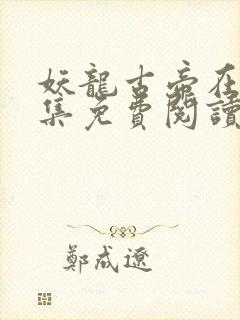 妖龍古帝在
集免費閱讀
鄭成遼